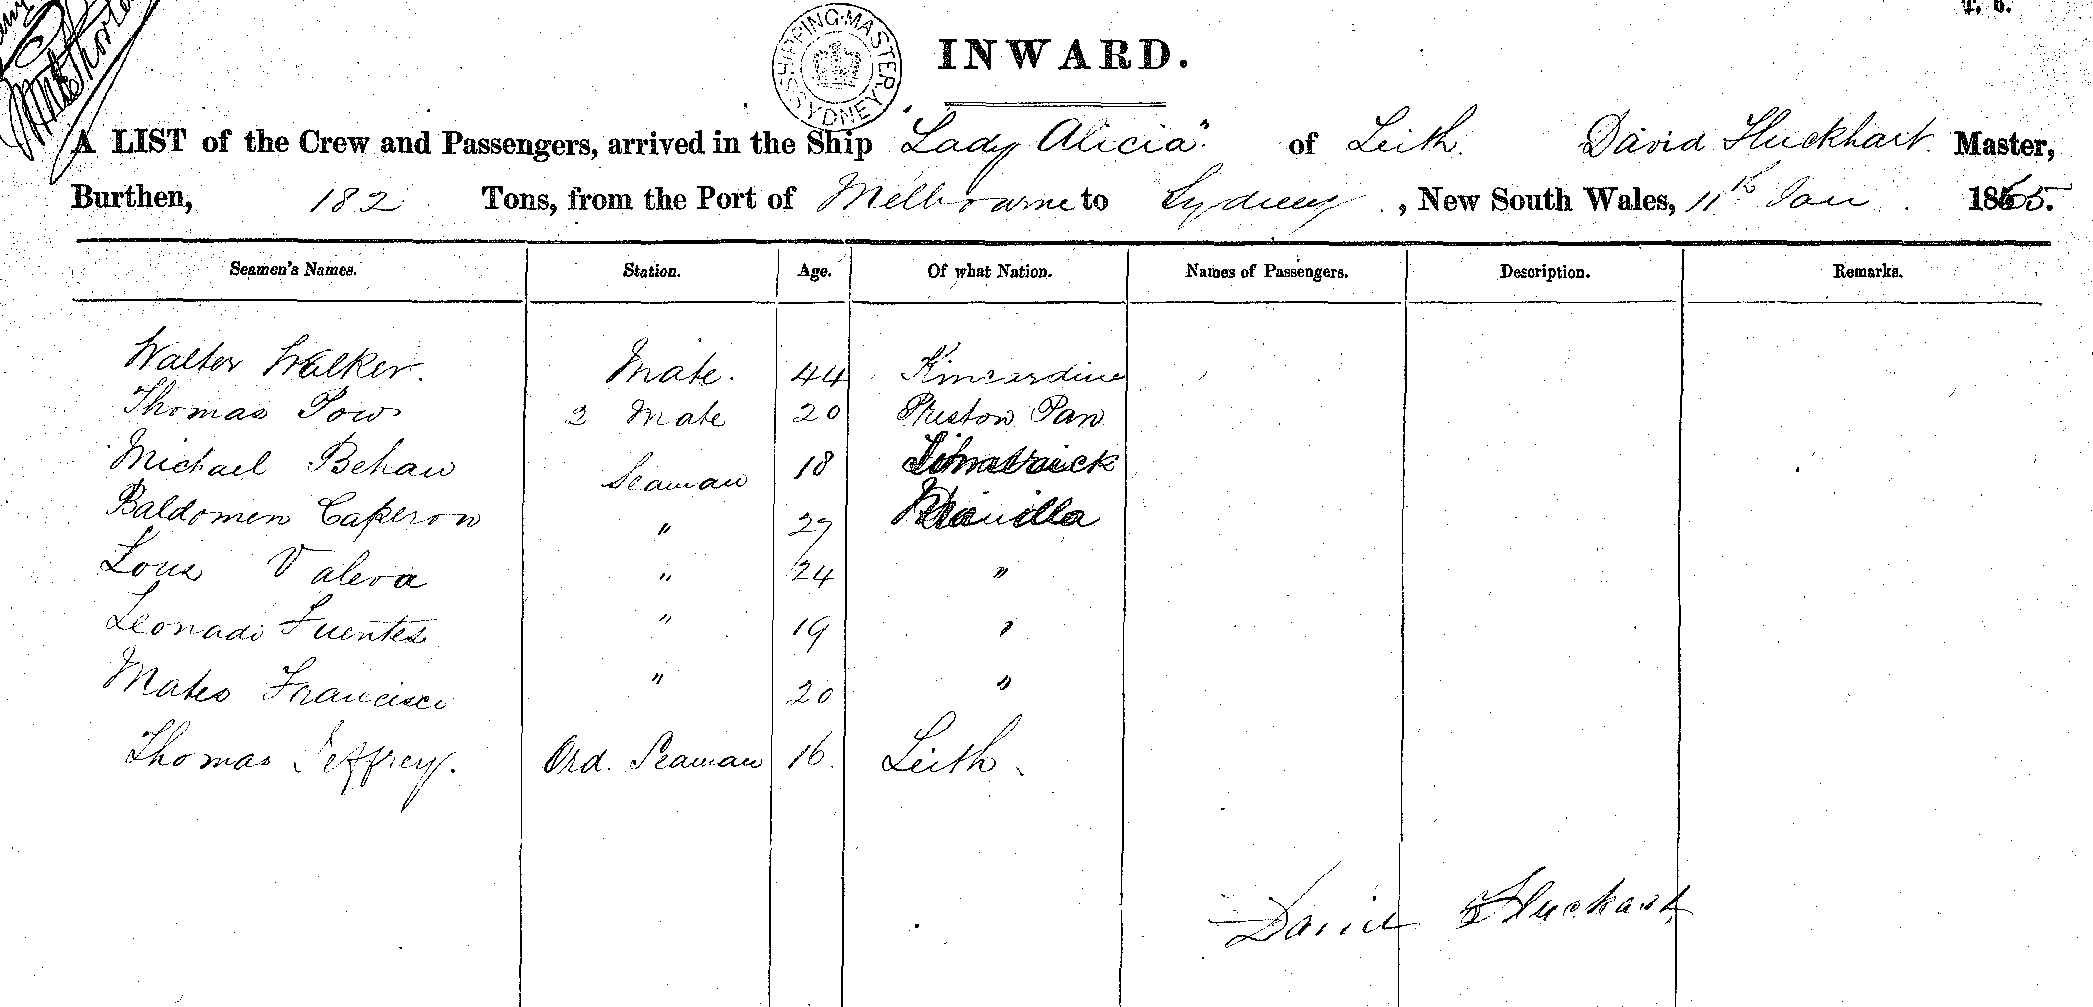 T. 6.
SHIPPING MASTER SYDNEY
INWARD.
A LIST of the Crew and Passengers, arrived in the Ship "Lady Alicia" of Leith. David Huckhart. Master,
Burthen, 182 Tons, from the Port of Melbourne to Sydney, New South Wales, 11th Jan 1865.
Seamen's Names. Station. Age. Of what Nation. Names of Passengers. Description. Remarks.
Walter Walker. Mate. 44 Kincardine
Thomas Pow 2 Mate 20 Preston Pan
Michael Behan Seaman 18
Baldomen Caperon " 27 Manilla
Louis Valera " 24 "
Leonadi Fuentes " 19 "
Mateo Francisco " 20 "
Thomas Jeffrey. Ord. Seaman 16. Leith.
David Huckhart